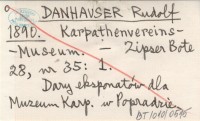 DANHAUSER Rudolf
1890. Karpathenvereins-
-Museum. - Zipser Bote
28, nr 35: 1.
Dary eksponatów dla
Muzeum Karp. w Popradzie.